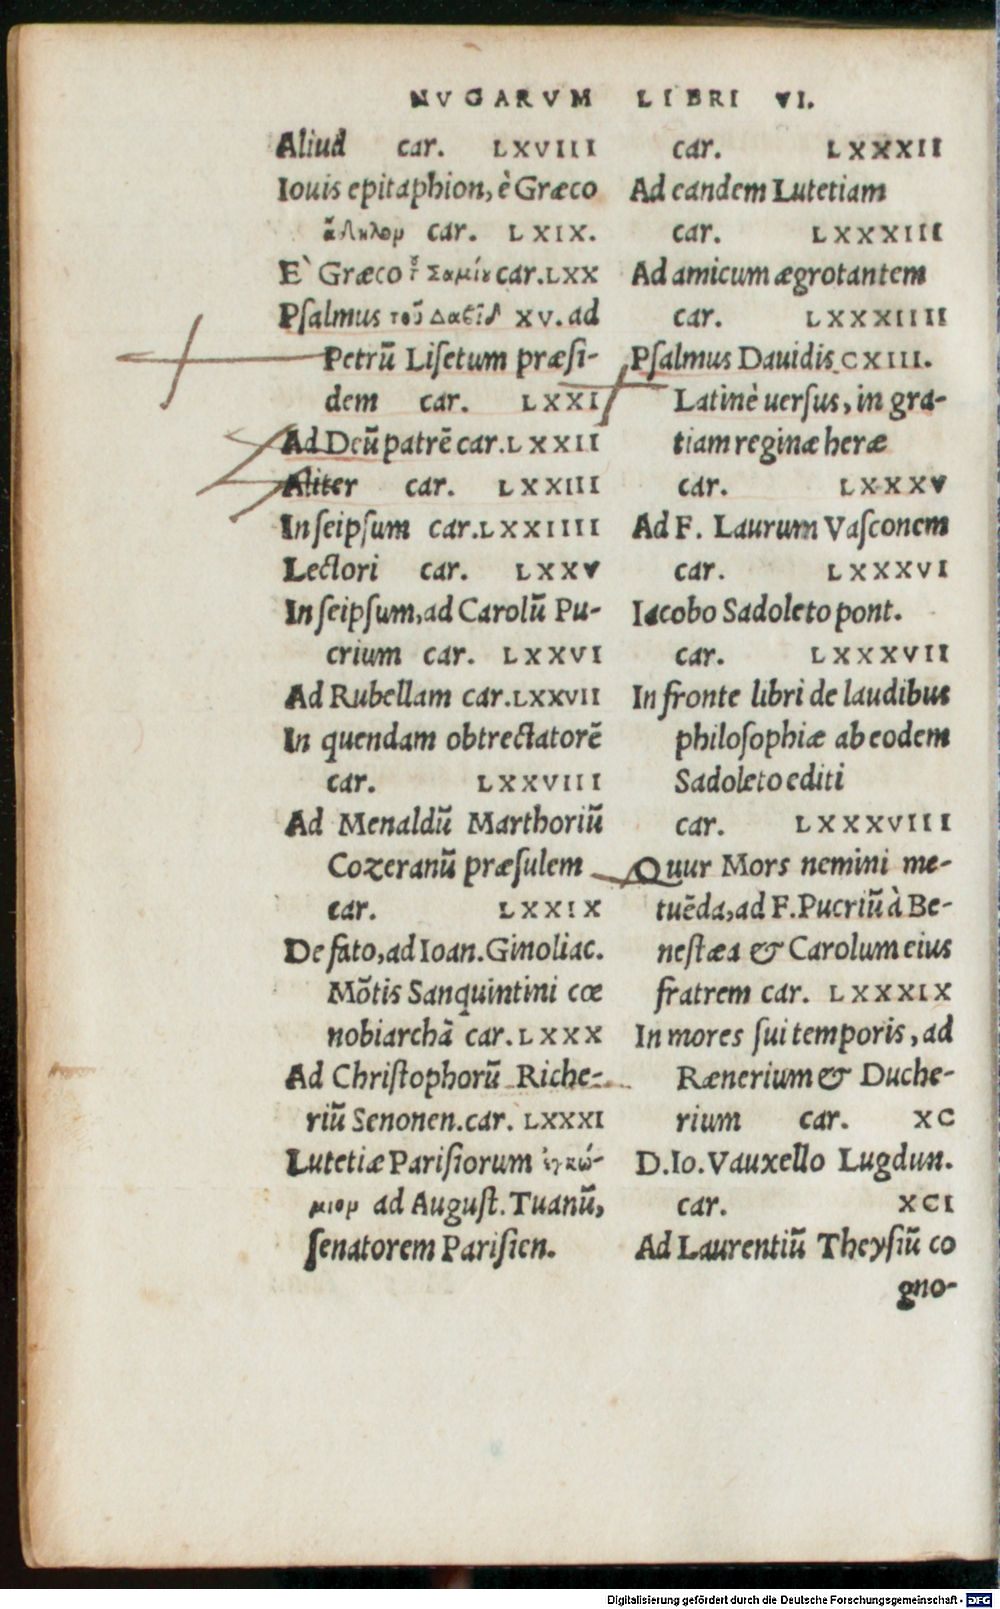 NVGARVM LIBRI VI.
Aliud car. LXVIII
Iouis epitaphion, è Græco
car. LXIX.
E` Græco Σαμίου car. LXX
Psalmus τοῦ Δαβὶδ XV. ad
Petrū Lisetum præsi-
dem car. LXXI
Ad Deū patrē car. LXXII
Aliter car. LXXIII
In seipsum car. LXXIIII
Lectori car. LXXV
In seipsum, ad Carolū Pu-
crium car. LXXVI
Ad Rubellam car. LXXVII
In quendam obtrectatorē
car. LXXVIII
Ad Menaldū Marthoriū
Cozeranū præsulem
car. LXXIX
De fato, ad Ioan. Ginoliac.
Mōtis Sanquintini cœ
nobiarchā car. LXXX
Ad Christophorū Riche-
riū Senonen. car. LXXXI
Lutetiæ Parisiorum ἐγκώ-
μιομ ad August. Tuanū,
senatorem Parisien.
car. LXXXII
Ad eandem Lutetiam
car. LXXXIII
Ad amicum ægrotantem
car. LXXXIIII
Psalmus Dauidis CXIII.
Latinè uersus, in gra-
tiam reginæ heræ
car. LXXXV
Ad F. Laurum Vasconem
car. LXXXVI
Iacobo Sadoleto pont.
car. LXXXVII
In fronte libri de laudibus
philosophiæ ab eodem
Sadoleto editi
car. LXXXVIII
Quur Mors nemini me-
tuēda, ad F. Pucriū à Be-
nestæa & Carolum eius
fratrem car. LXXXIX
In mores sui temporis, ad
Rænerium & Duche-
rium car. XC
D. Io. Vauxello Lugdun.
car. XCI
Ad Laurentiū Theysiū co
gno-
Digitalisierung gefördert durch die Deutsche Forschungsgemeinschaft - DFG